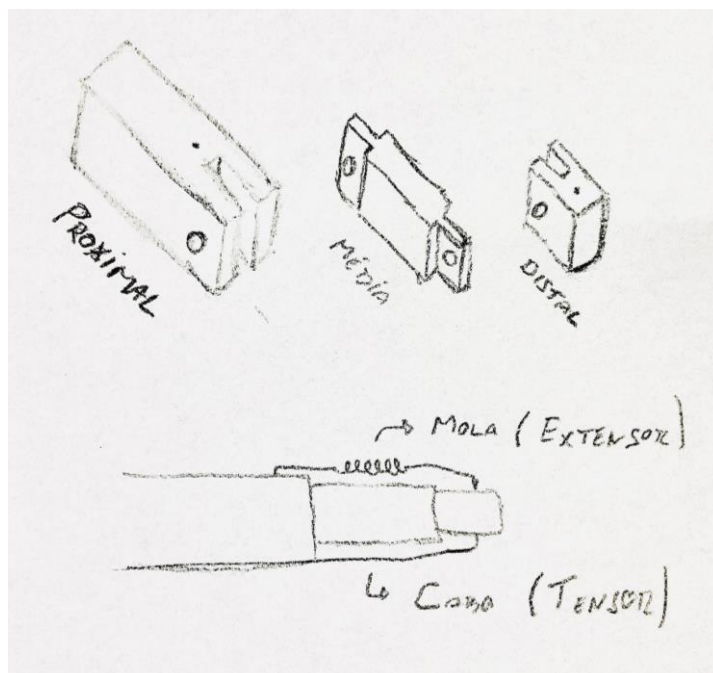 PROXIMAL
MÉDIA
DISTAL
MOLA (EXTENSOR)
CABO (TENSOR)